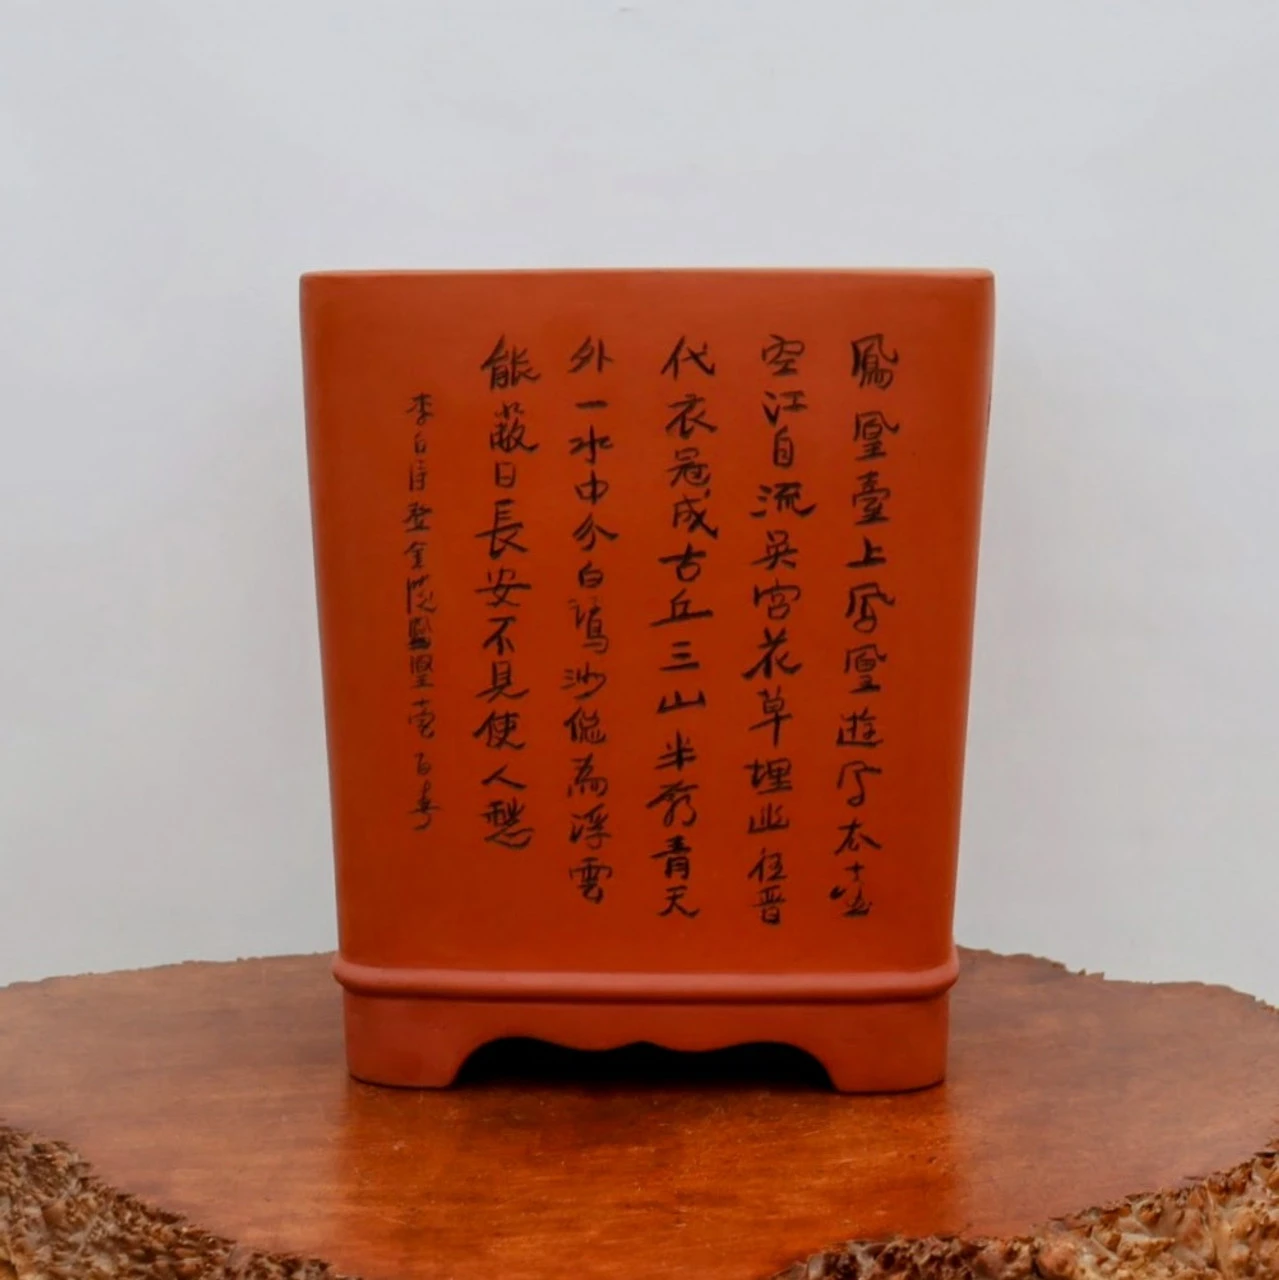 鳳凰臺上鳳凰遊鳳去臺
空江自流吳宮花草埋幽徑晉
代衣冠成古丘三山半青天
外一水中分白鷺總為浮雲
能蔽日長安不見使人愁
李白詩登金陵鳳凰臺